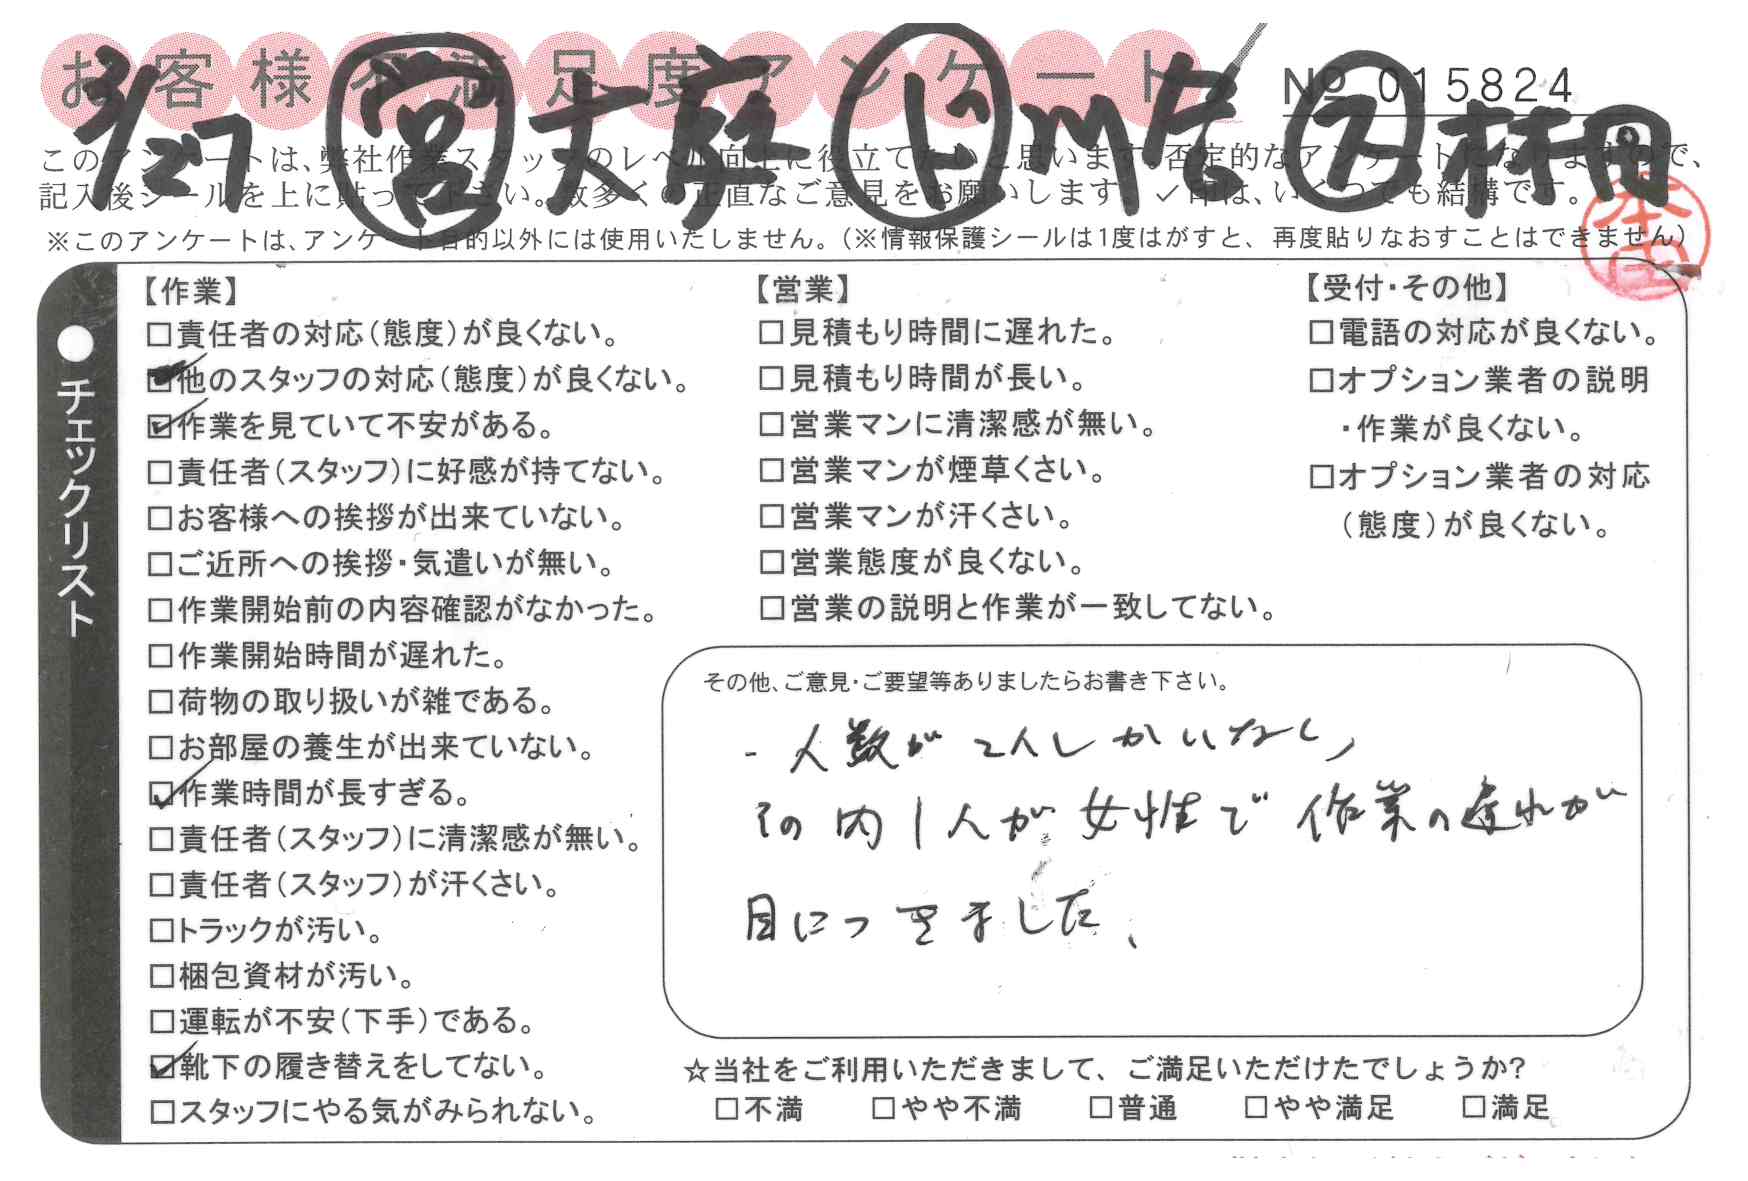 お客様不満足度アンケート
№ 015824
3/27 営 大庭 ド 川合 ス 林用
このアンケートは、弊社作業スタッフのレベル向上に役立てたいと思います。否定的なアンケートになりますので、
記入後シールを上に貼って下さい。数多くの正直なご意見をお願いします。✓印は、いくつでも結構です。
※このアンケートは、アンケート目的以外には使用いたしません。(※情報保護シールは1度はがすと、再度貼りなおすことはできません)
●チェックリスト
【作業】
□責任者の対応(態度)が良くない。
☑他のスタッフの対応(態度)が良くない。
☑作業を見ていて不安がある。
□責任者(スタッフ)に好感が持てない。
□お客様への挨拶が出来ていない。
□ご近所への挨拶・気遣いが無い。
□作業開始前の内容確認がなかった。
□作業開始時間が遅れた。
□荷物の取り扱いが雑である。
□お部屋の養生が出来ていない。
☑作業時間が長すぎる。
□責任者(スタッフ)に清潔感が無い。
□責任者(スタッフ)が汗くさい。
□トラックが汚い。
□梱包資材が汚い。
□運転が不安(下手)である。
☑靴下の履き替えをしてない。
□スタッフにやる気がみられない。
【営業】
□見積もり時間に遅れた。
□見積もり時間が長い。
□営業マンに清潔感が無い。
□営業マンが煙草くさい。
□営業マンが汗くさい。
□営業態度が良くない。
□営業の説明と作業が一致してない。
【受付・その他】
□電語の対応が良くない。
□オプション業者の説明
・作業が良くない。
□オプション業者の対応
(態度)が良くない。
その他、ご意見・ご要望等ありましたらお書き下さい。
- 人数が2人しかいなく、
その内1人が女性で作業の遅れが
目につきました、
☆当社をご利用いただきまして、ご満足いただけたでしょうか?
□不満 □やや不満 □普通 □やや満足 □満足